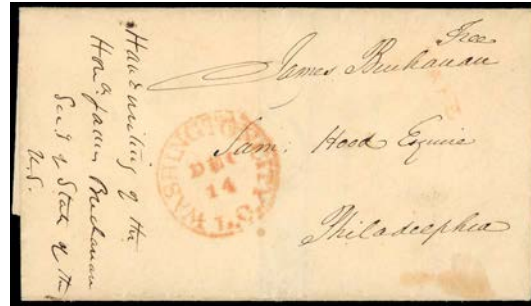 Free
James Buchanan
FREE
Sam: Hood Esquire
Philadelphia
WASHINGTON CITY D.C.
DEC
14
Handwriting of the
Hon. James Buchanan
Sec'y of State of the
U.S.